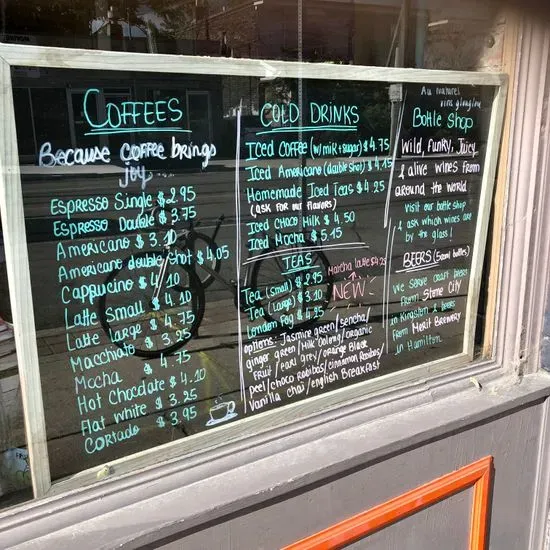 COFFEE'S
Because coffee brings
joy...
Espresso Single $2.95
Espresso Double $3.75
Americano $3.10
Americano double shot $4.05
Cappucino $4.10
Latte small $4.10
Latte large $4.75
Macchiato $3.25
Mocha $4.75
Hot Chocolate $4.10
Flat white $3.25
Cortado $3.95
COLD DRINKS
Iced Coffee (w/milk+sugar) $4.75
Iced Americano (double shot) $4.15
Homemade Iced Teas $4.25
(ask for our flavors)
Iced Choco Milk $4.50
Iced Mocha $5.15
TEAS
Tea (small) $2.95
Tea (large) $3.10
London Fog $4.95
Matcha latte $4.25
NEW
options: Jasmine green/sencha/
ginger green/Milk Oolong/organic
Fruit/earl grey/orange Black
peel/choco rooibos/cinnamon Rooibos/
Vanilla chai/english Breakfast
Au naturel
vins glouglou
Bottle Shop
Wild, funky, Juicy
& alive wines from
around the world
Visit our bottle shop
& ask which wines are
by the glass!
BEERS (500ml bottles)
We serve craft beers
from Stone City
in Kingston & beers
from Merit Brewery
in Hamilton